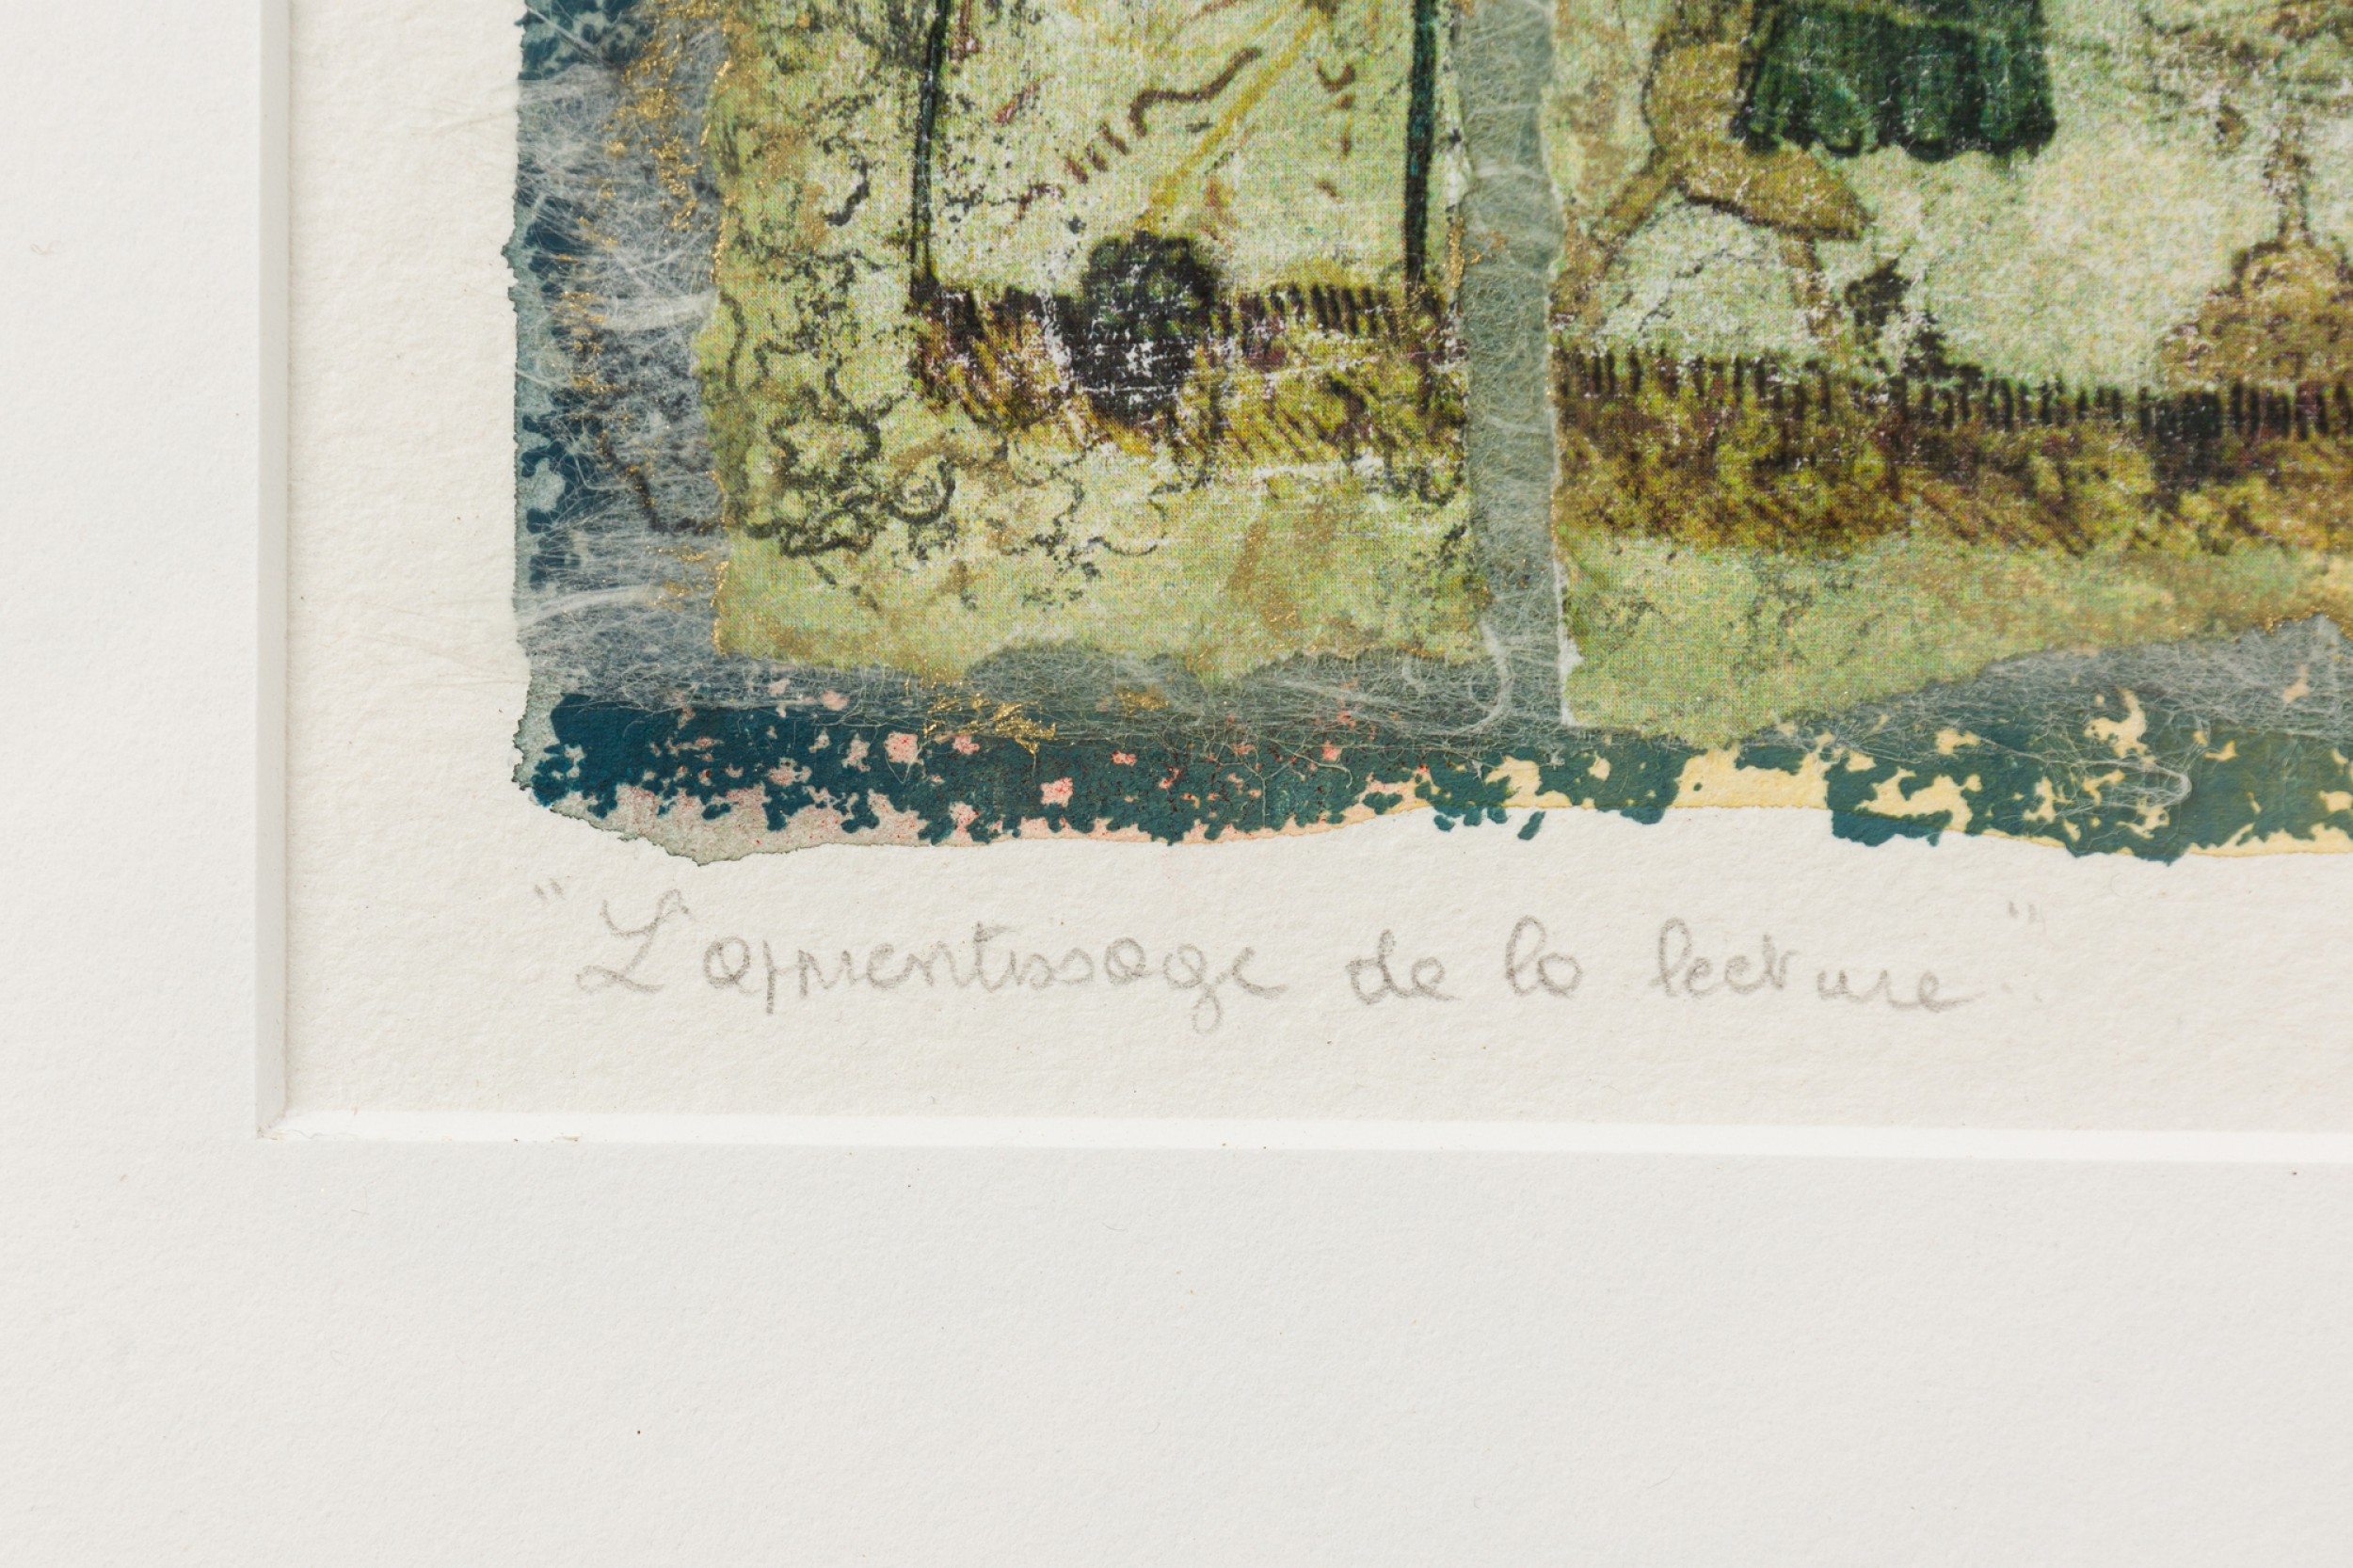 "L'apprentissage de la lecture"